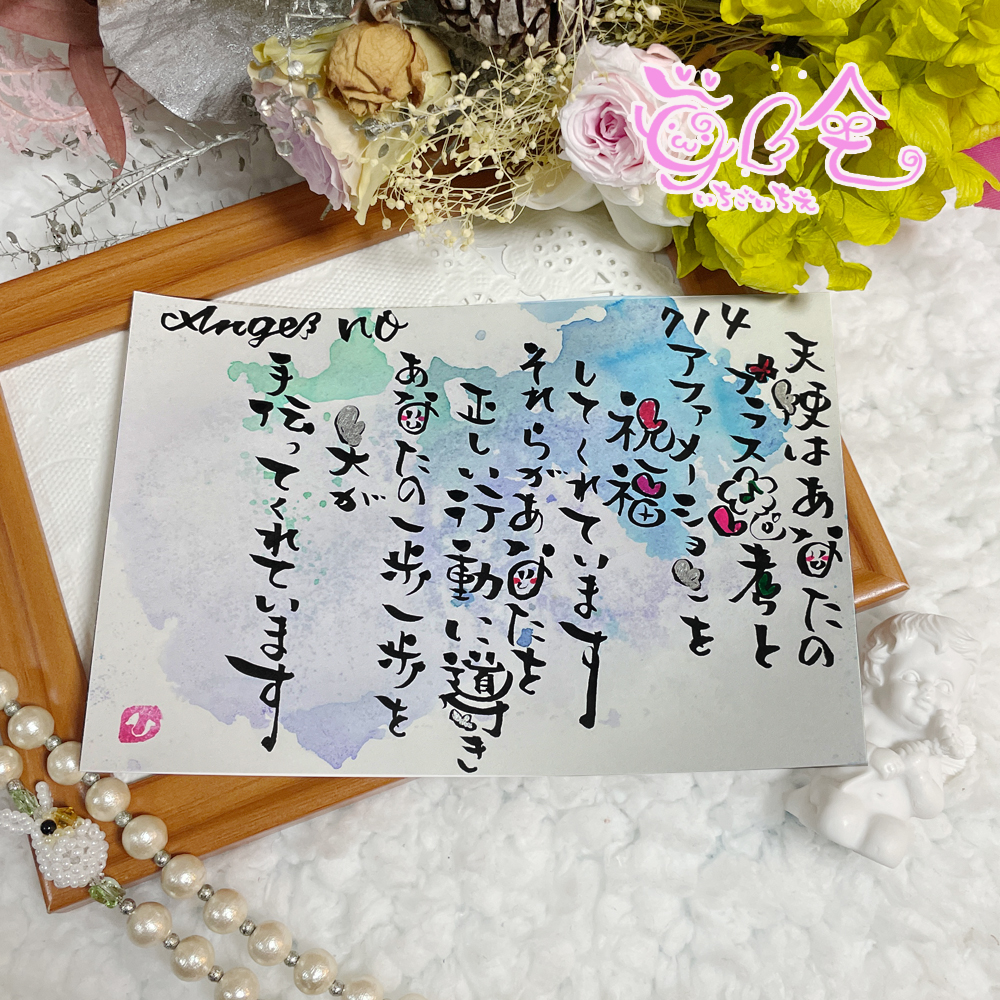 Angel no 714
天使はあなたの
プラス思考と
アファメーションを
祝福
してくれています
それらがあなたを
正しい行動に導き
あなたの一歩一歩を
天が
手伝ってくれています
いちごいちえ